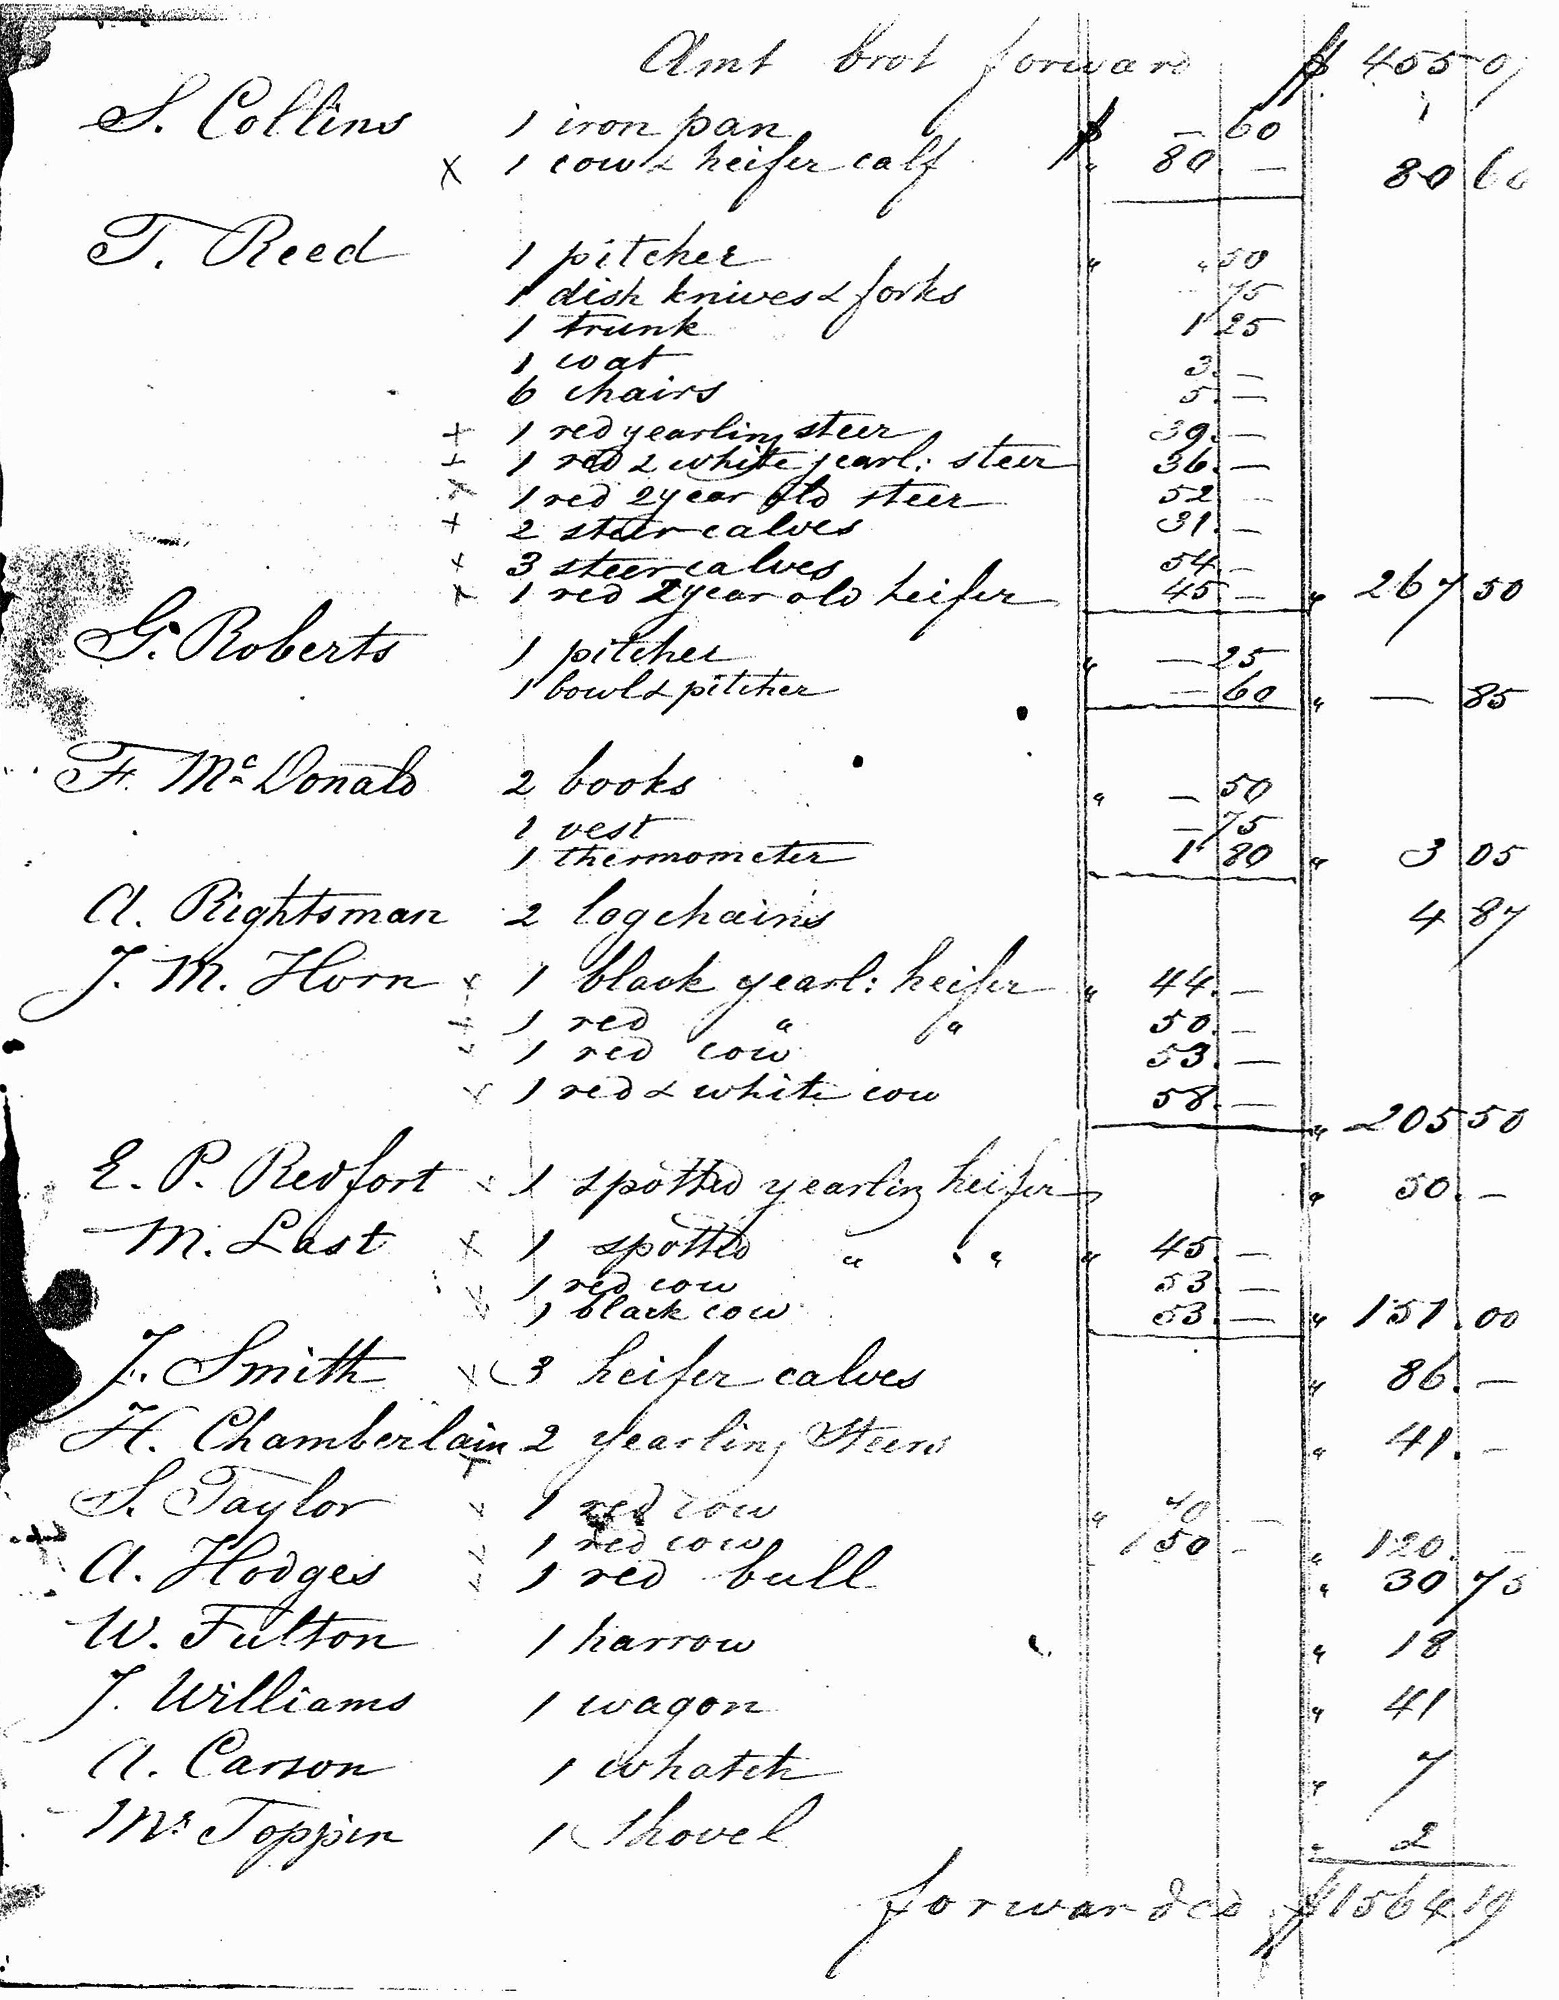 Amt brot forward $ 455 07
S. Collins 1 iron pan $ — 60
x 1 cow & heifer calf " 80. — 80 60
T. Reed 1 pitcher " " 50
1 dish knives & forks — 75
1 trunk 1 25
1 coat 3. —
6 chairs 5. —
x 1 red yearling steer 39. —
x 1 red & white yearl: steer 36. —
x 1 red 2 year old steer 52 —
x 2 steer calves 31. —
x 3 steer calves 54. —
x 1 red 2 year old heifer 45 — " 267 50
G. Roberts 1 pitcher " — 25
1 bowl & pitcher — 60 " — 85
F. McDonald 2 books " — 50
1 vest — 75
1 thermometer 1 80 " 3 05
A. Rightsman 2 logchains 4 87
J. M. Horn x 1 black yearl: heifer " 44. —
x 1 red " " 50. —
x 1 red cow 53. —
x 1 red & white cow 58. —
" 205 50
E. P. Redfort x 1 spotted yearling heifer " 50. —
M. Last x 1 spotted " " " 45. —
1 red cow 53. —
x 1 black cow 53. — " 151. 00
J. Smith x 3 heifer calves " 86. —
H. Chamberlain x 2 yearling Steers " 41. —
S. Taylor x 1 red cow " 70 —
x 1 red cow 50 — " 120. —
A. Hodges x 1 red bull " 30 75
W. Fulton 1 harrow " 18
J. Williams 1 wagon " 41
A. Carson 1 whatch " 7
Mr. Toppin 1 Shovel " 2
forwarded $ 1564 19